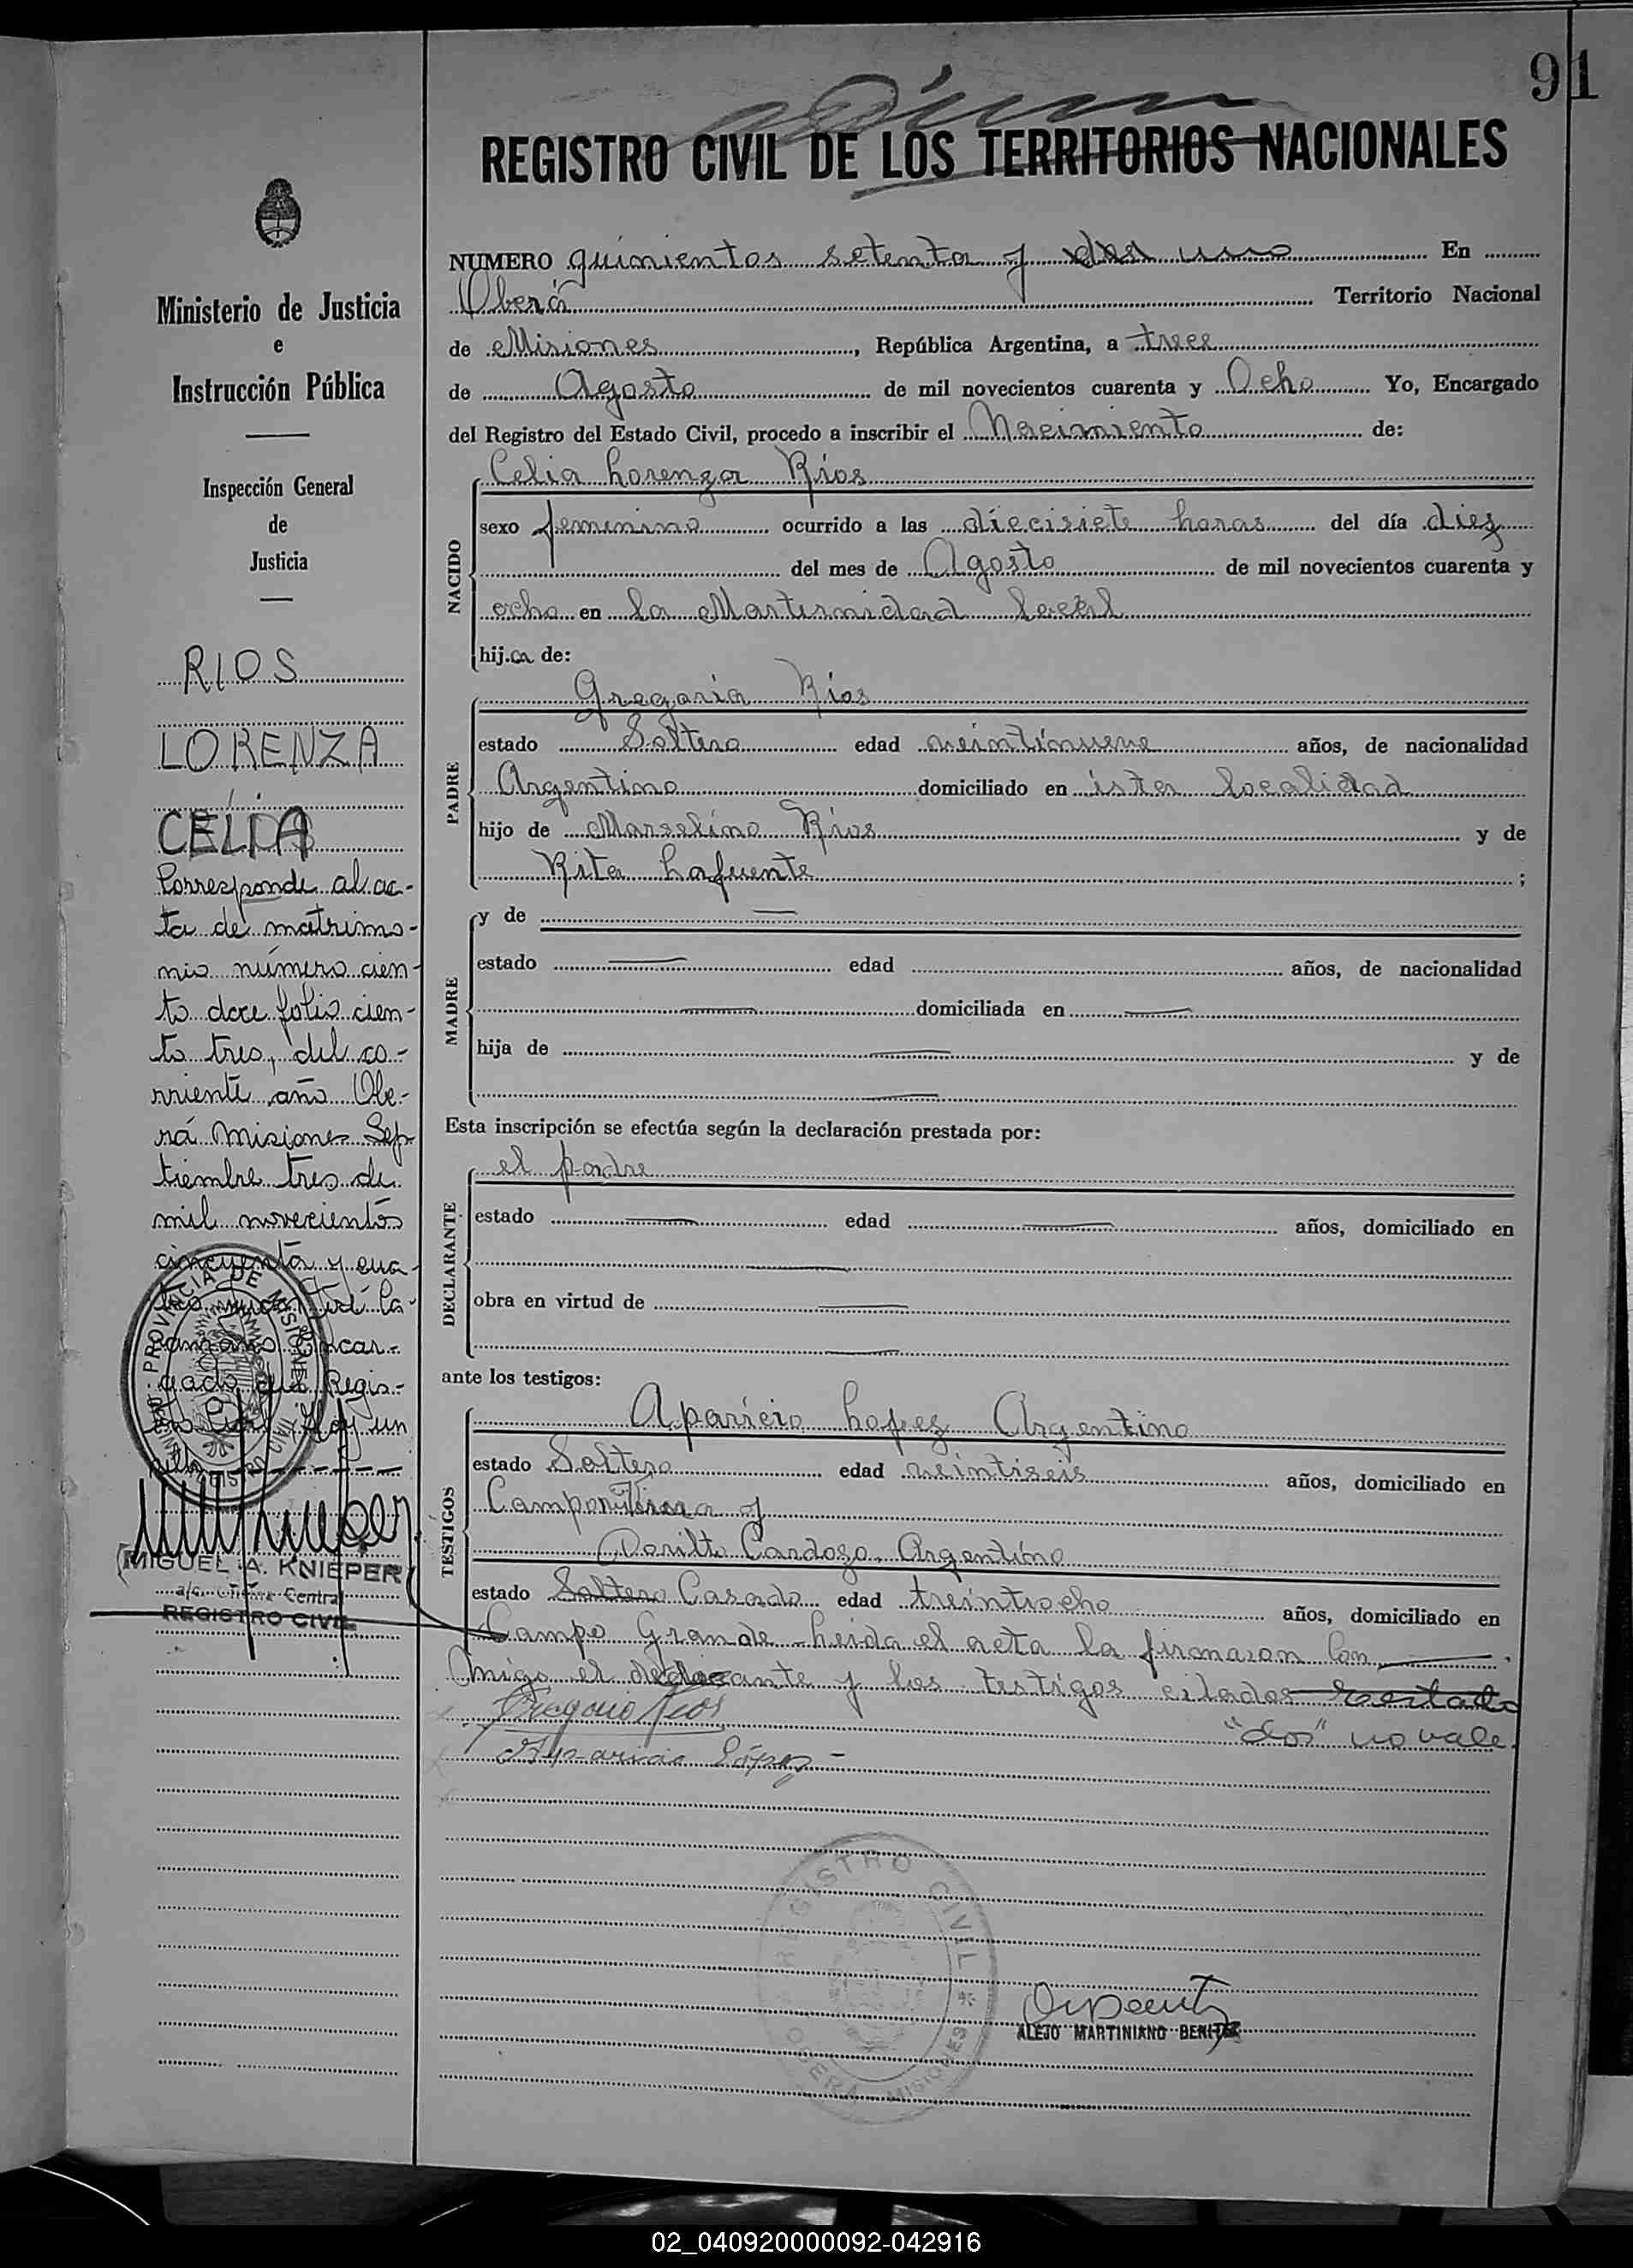 91
REGISTRO CIVIL DE LOS TERRITORIOS NACIONALES
Ministerio de Justicia
e
Instrucción Pública
Inspección General
de
Justicia
RIOS
LORENZA
CELIA
Corresponde al ac-
ta de matrimo-
nio número cien-
to doce folio cien-
to tres, del co-
rriente año Obe-
rá Misiones Sep-
tiembre tres de
mil novecientos
cincuenta y cua-
Encar-
gado del Regis-
PROVINCIA DE MISIONES
MIGUEL A. KNIEPER
a/c. Oficina Central
REGISTRO CIVIL
NUMERO quinientos setenta y dos uno En
Oberá Territorio Nacional
de Misiones, República Argentina, a trece
de Agosto de mil novecientos cuarenta y Ocho Yo, Encargado
del Registro del Estado Civil, procedo a inscribir el Nacimiento de:
NACIDO
Celia Lorenza Ríos
sexo femenino ocurrido a las diecisiete horas del día diez
del mes de Agosto de mil novecientos cuarenta y
ocho en la Maternidad local
hij.a de:
PADRE
Gregorio Ríos
estado Soltero edad veintinueve años, de nacionalidad
Argentino domiciliado en ésta localidad
hijo de Marselino Ríos y de
Rita Lafuente ;
MADRE
y de —
estado — edad años, de nacionalidad
— domiciliada en —
hija de — y de
—
Esta inscripción se efectúa según la declaración prestada por:
DECLARANTE
el padre
estado — edad — años, domiciliado en
—
obra en virtud de —
—
ante los testigos:
TESTIGOS
Aparicio Lopez Argentino
estado Soltero edad veintiseis años, domiciliado en
Campo Viera y
Cardozo, Argentino
estado Soltero Casado edad treintiocho años, domiciliado en
Campo Grande - Leida el acta la firmaron Con —
migo el declarante y los testigos citados
"dos" no vale.
Gregorio Rios
Aparicio López -
REGISTRO CIVIL
OBERA MISIONES
ALEJO MARTINIANO BENITEZ
02_040920000092-042916